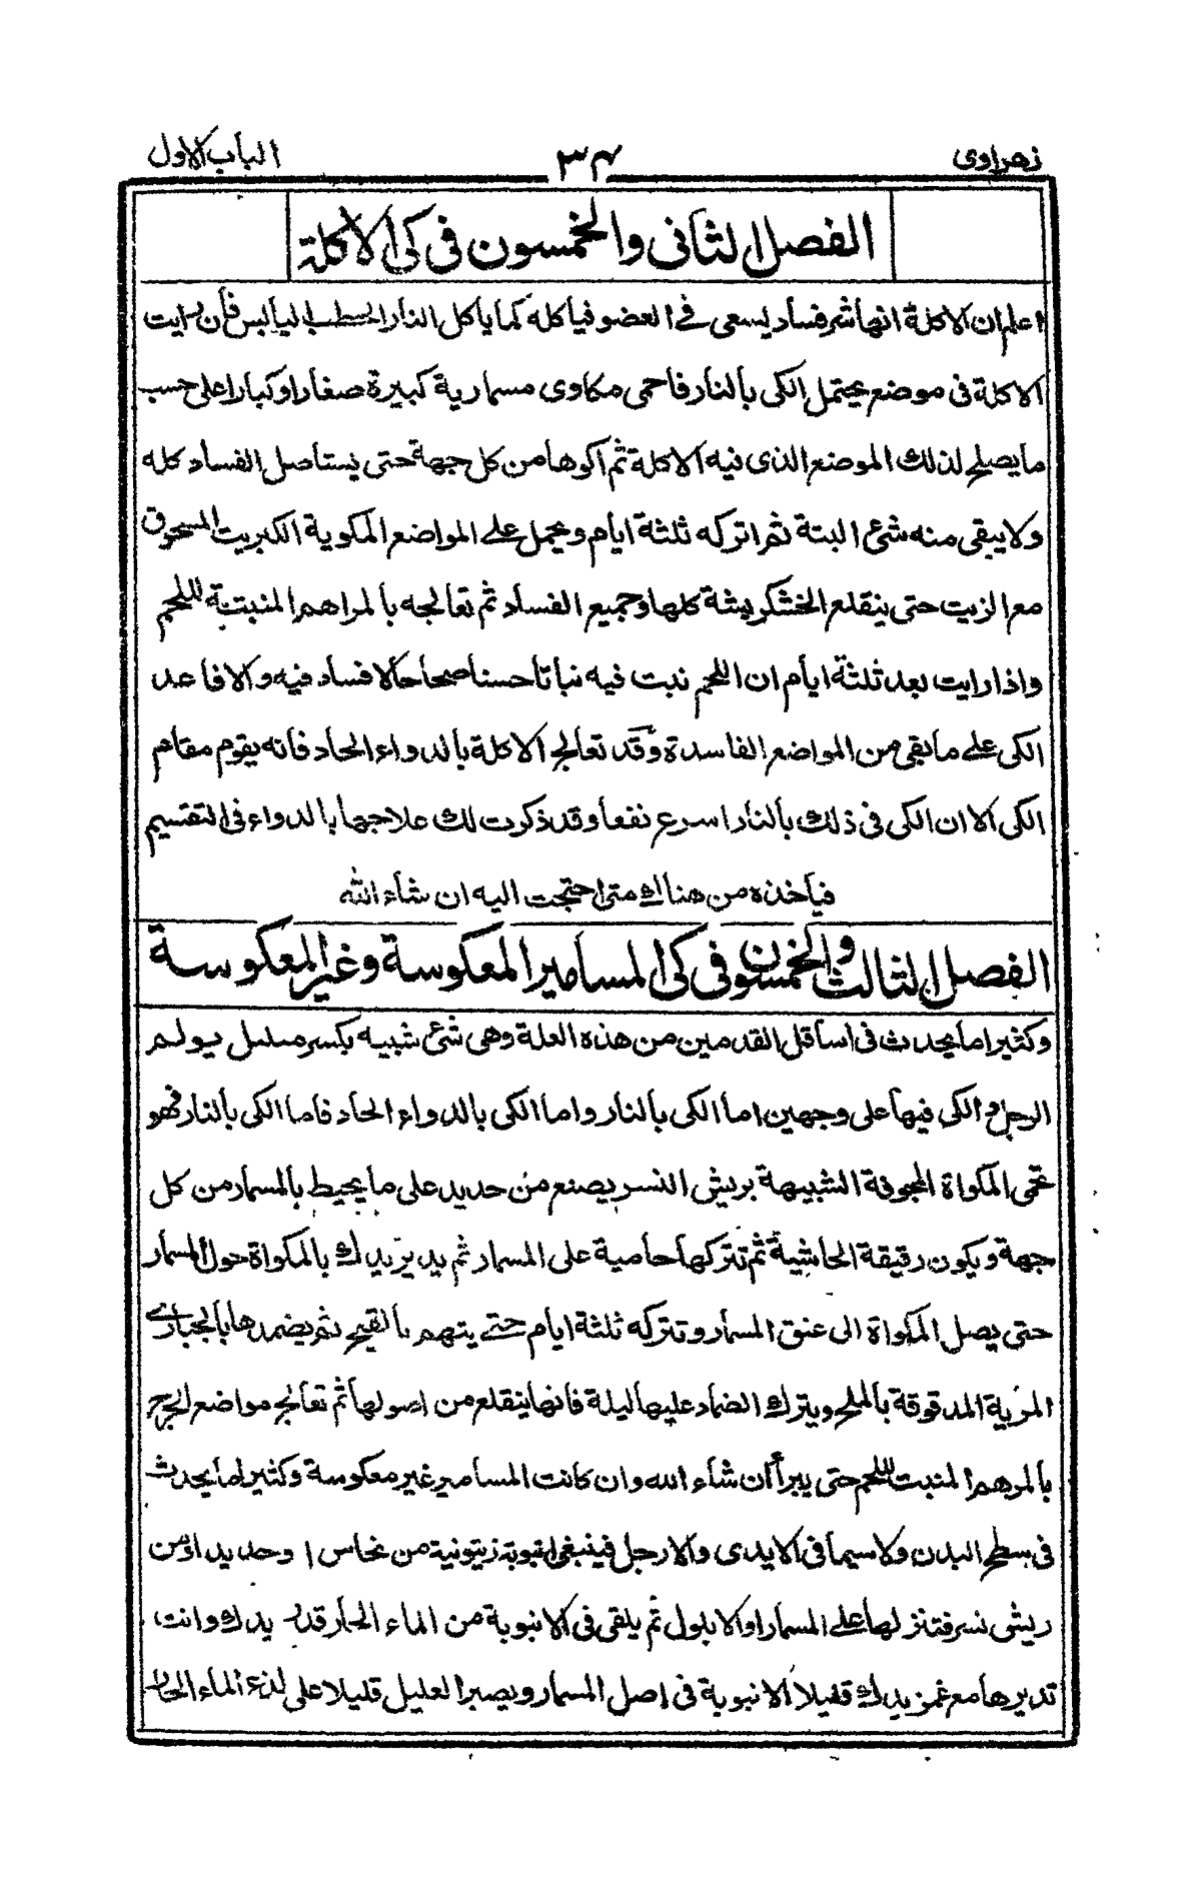 زهراوى ٣۴ الباب الاول
الفصل الثانى والخمسون فى كى الاكلة
اعلم ان الاكلة انها شر فساد يسعى فے العضو فياكله كما ياكل النار الحطب اليابس فان رايت
الاكلة فى موضع يحتمل الكى بالنار فاحمى مكاوى مسمارية كبيرة صغارا وكبارا على حسب
ما يصلح لذلك الموضع الذى فيه الاكلة ثم اكوها من كل جهة حتى يستاصل الفساد كله
ولا يبقى منه شئ البتة ثم اتركه ثلثة ايام و يحمل علے المواضع المكوية الكبريت المسحوق
مع الزيت حتى ينقلع الخشكريشة كلها وجميع الفساد ثم تعالجه بالمراهم المنبتة للحم
واذا رايت بعد ثلثة ايام ان اللحم نبت فيه نباتا حسنا صحاحا لا فساد فيه والا فاعد
الكى علے ما بقى من المواضع الفاسدة وقد تعالج الاكلة بالدواء الحاد فانه يقوم مقام
الكى الا ان الكى فى ذلك بالنار اسرع نفعا وقد ذكرت لك علاجها بالدواء فى التقسيم
فياخذه من هناك متى احتجت اليه ان شاء الله
الفصل الثالث والخمسون فى كى المسامير المعكوسة وغير المعكوسة
وكثيرا ما يحدث فى اسافل القدمين من هذه العلة وهى شئ شبيه بكسر يولم
الرجل و الكى فيها على وجهين اما الكى بالنار واما الكى بالدواء الحاد فاما الكى بالنار فهو
تحمى المكواة المجوفة الشبيهة بريش النسر يصنع من حديد على ما يحيط بالمسمار من كل
جهة ويكون رقيقة الحاشية ثم تتركها حامية على المسمار ثم يدير يدك بالمكواة حول المسمار
حتى يصل المكواة الى عنق المسمار وتتركه ثلثة ايام حتے يتهم بالقيح ثم يضمدها بالخبازے
المرية المدقوقة بالملح ويترك الضماد عليها ليلة فانها ينقلع من اصولها ثم تعالج مواضع الجرح
بالمرهم المنبت للحم حتى يبرأ ان شاء الله وان كانت المسامير غير معكوسة وكثيرا ما يحدث
فى سطح البدن ولا سيما فى الايدى والارجل فينبغى انبوبة زيتونية من نحاس ا وحديد اومن
ريش نسر فتنزلها علے المسمار او الابلول ثم يلقى فى الانبوبة من الماء الحار قدر يدك وانت
تديرها مع غمز يدك قليلا الانبوبة فى اصل المسمار ويصبر العليل قليلا على لذع الماء الحار